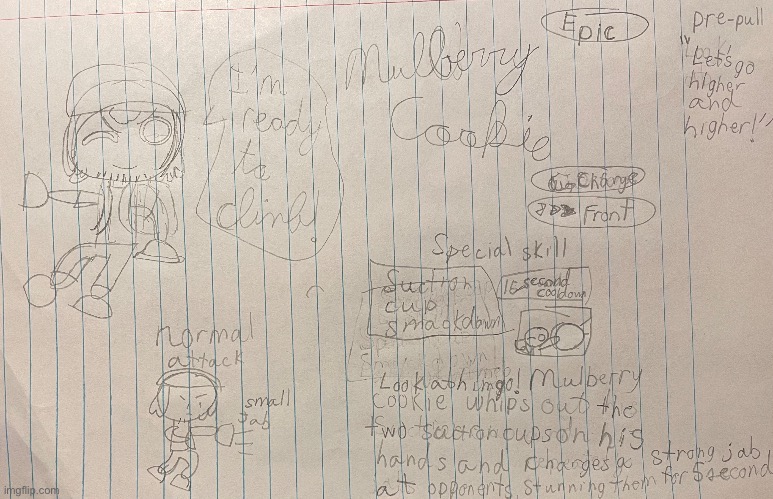 Epic
pre-pull
"Let's go
higher
and
higher!"
Mulberry
Cookie
I'm
ready
to
climb!
Charge
Front
Special skill
Suction
cup
smackdown
15 second
cooldown
normal
attack
small
jab
Look at him go! Mulberry
Cookie whips out the
two suction cups on his
hands and charges a strong jab
at opponents, stunning them for 5 second
imgflip.com